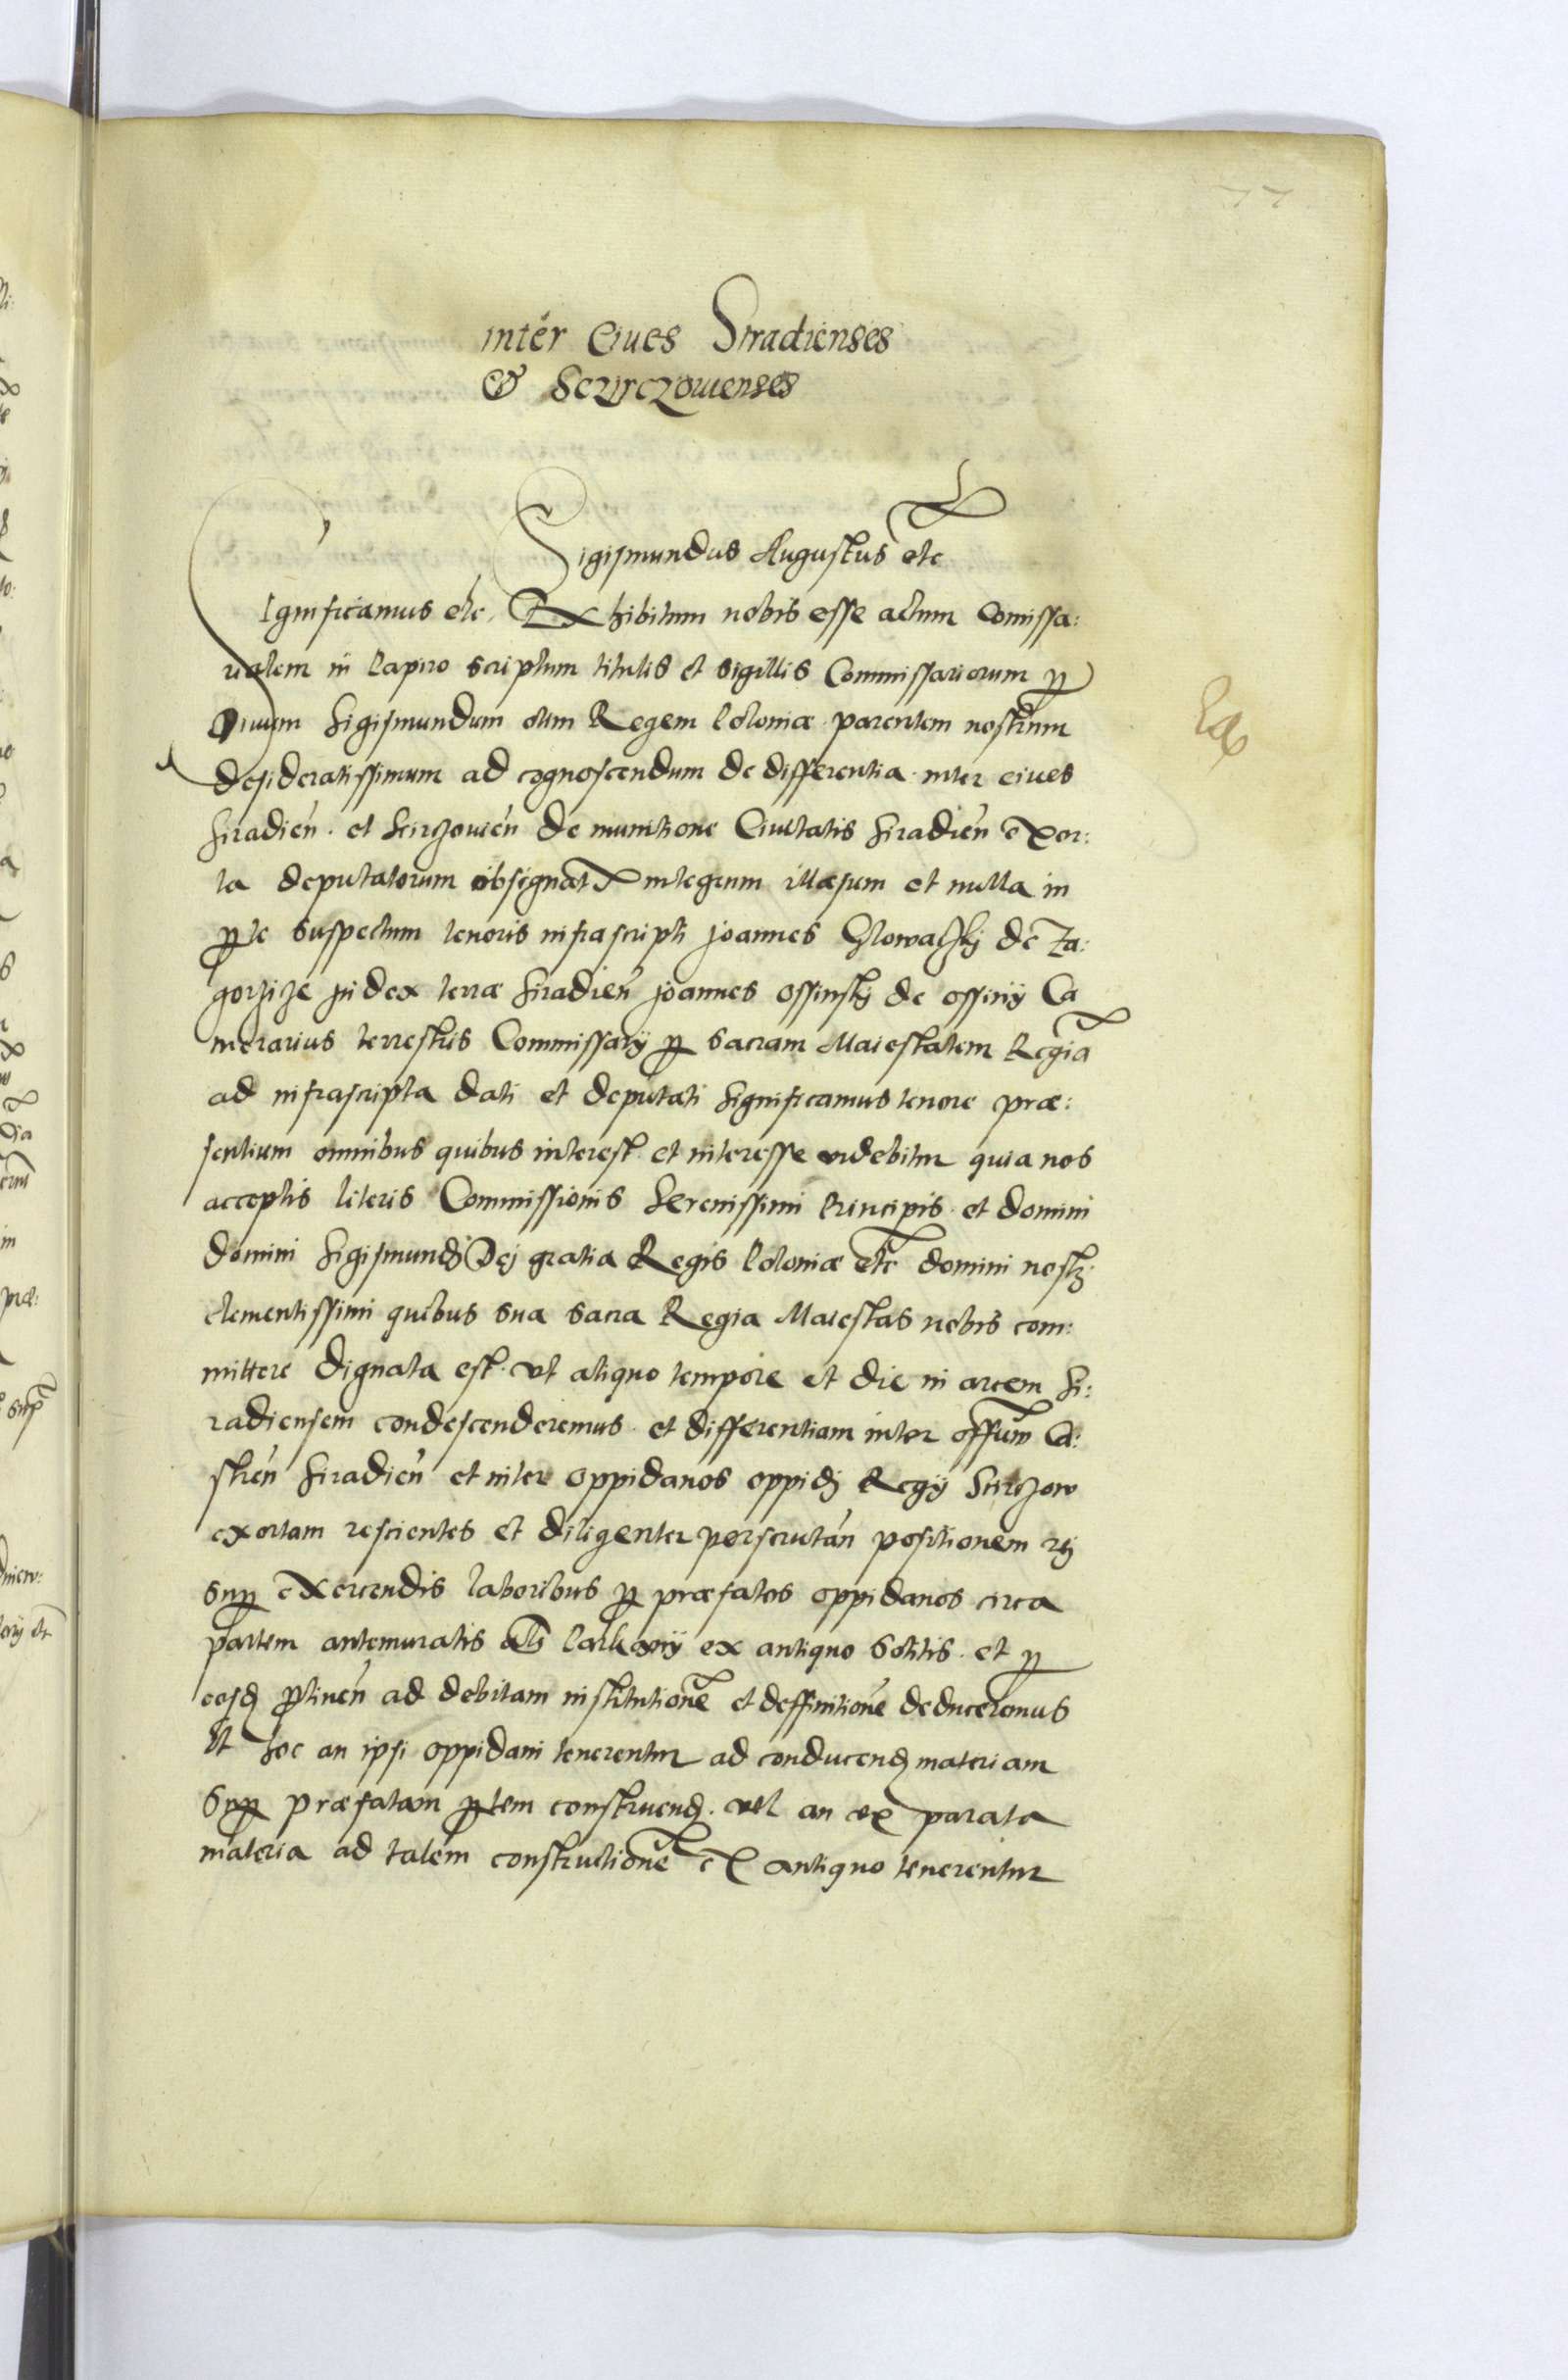 77
inter Ciues Siradienses
& Sczyrczowienses
Sigismundus Augustus etc
Significamus etc. Exhibitum nobis esse actum Comissa:
rialem in Papiro scriptum titulis et sigillis Commissariorum p
Diuum Sigismundum olim Regem Poloniæ parentem nostrum
desideratissimum ad cognoscendum de differentia inter ciues
Siradien. et Scirczouien de munitione Ciuitatis Siradien exor:
ta deputatorum obsignat integrum illæsum et nulla in
pte suspectum tenoris infrascripti Joannes Glowaczky de Za:
gorzicze Judex terræ Siradien Joannes Ossinsky de Ossiny Ca
merarius terrestris Commissarij p sacram Maiestatem Regia
ad infrascripta dati et deputati Significamus tenore præ:
sentium omnibus quibus interest et interesse videbitur quia nos
acceptis literis Commissionis Serenissimi Principis et domini
domini Sigismundj Dej gratia Regis Poloniæ etc domini nostrj
clementissimi quibus sua sacra Regia Maiestas nobis com:
mittere dignata est vt aliquo tempore et die in arcem Si:
radiensem condescenderemus et differentiam inter offum Ca:
stren Siradien et inter oppidanos oppidj Regij Scirczow
exortam rescientes et diligenter perscrutan positionem rej
sup exercendis laboribus p præfatos oppidanos circa
partem antemuralis als Parkany ex antiquo solitis et p
eosd ptinen ad debitam institutione et deffinitione deduceremus
Et hoc an ipsi oppidani tenerentur ad conducend materiam
sup præfatam ptem construend. vel an ex parata
materia ad talem constructione ex antiquo tenerentur